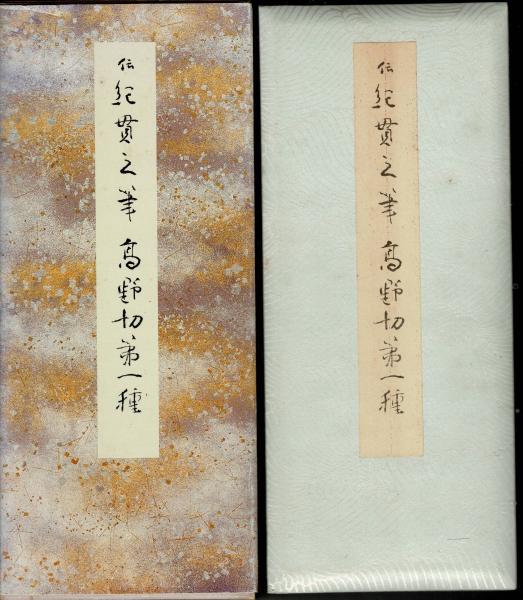 伝紀貫之筆高野切第一種
伝紀貫之筆高野切第一種